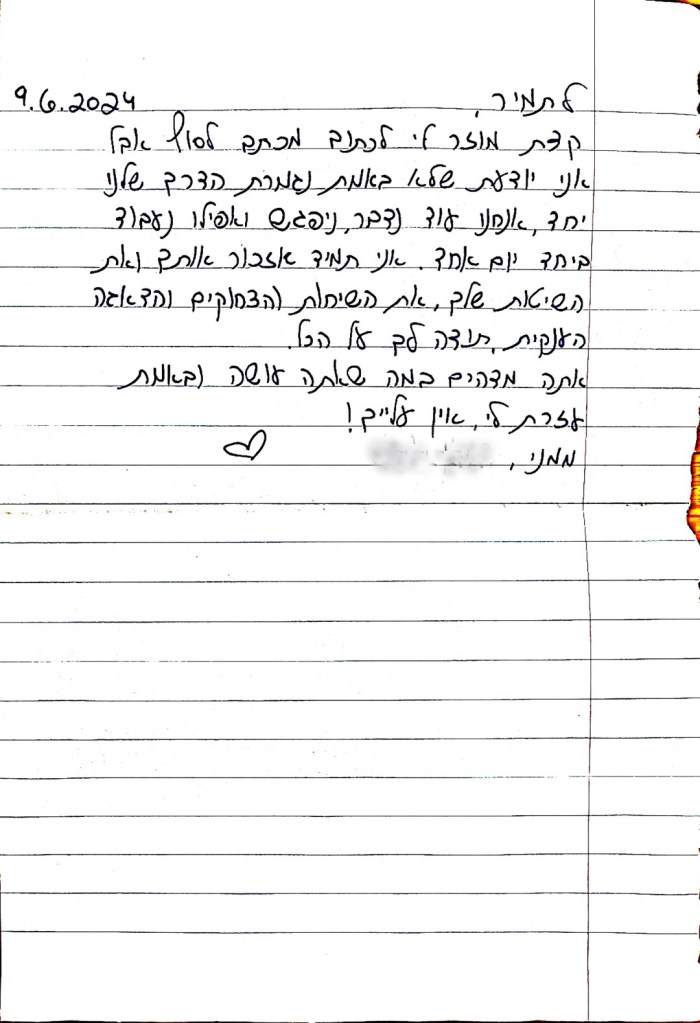 לתמיר,
9.6.2024
קצת מוזר לי לכתוב מכתב לסוף אבל
אני יודעת שלא באמת נגמרת הדרך שלנו
יחד, אנחנו עוד נדבר, ניפגש ואפילו נעבוד
ביחד יום אחד. אני תמיד אזכור אותך ואת
השיטות שלך, את השיחות והצחוקים והדאגה
הענקית, תודה לך על הכל.
אתה מדהים במה שאתה עושה ובאמת
עזרת לי, אין עלייך!
ממני,